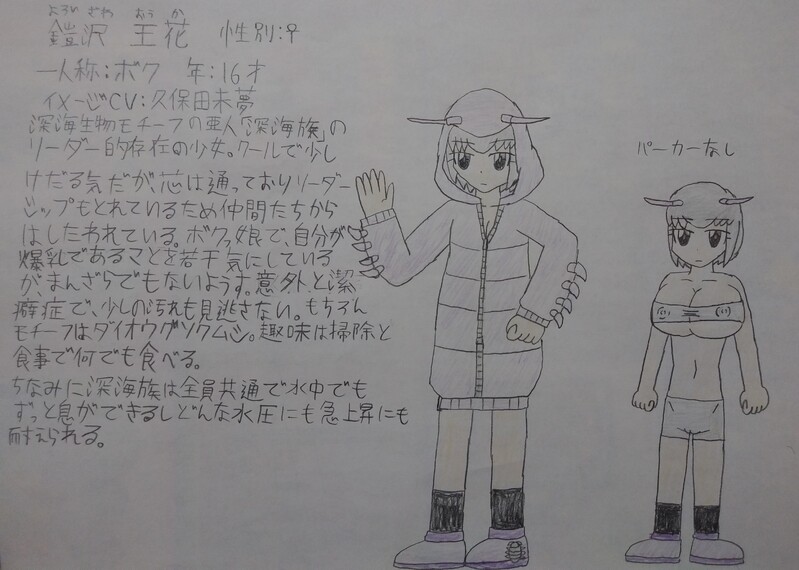 よろい ざわ おう か
鎧沢 王花 性別:♀
一人称:ボク 年:16才
イメージCV:久保田未夢
深海生物モチーフの亜人「深海族」の
リーダー的存在の少女。クールで少し
けだる気だが、芯は通っておりリーダー
シップもとれているため仲間たちから
はしたわれている。ボクっ娘で、自分が
爆乳であることを若干気にしている
がまんざらでもないようす。意外と潔
癖症で、少しの汚れも見逃さない。もちろん
モチーフはダイオウグソクムシ。趣味は掃除と
食事で何でも食べる。
ちなみに深海族は全員共通で水中でも
ずっと息ができるしどんな水圧にも急上昇にも
耐えられる。
パーカーなし